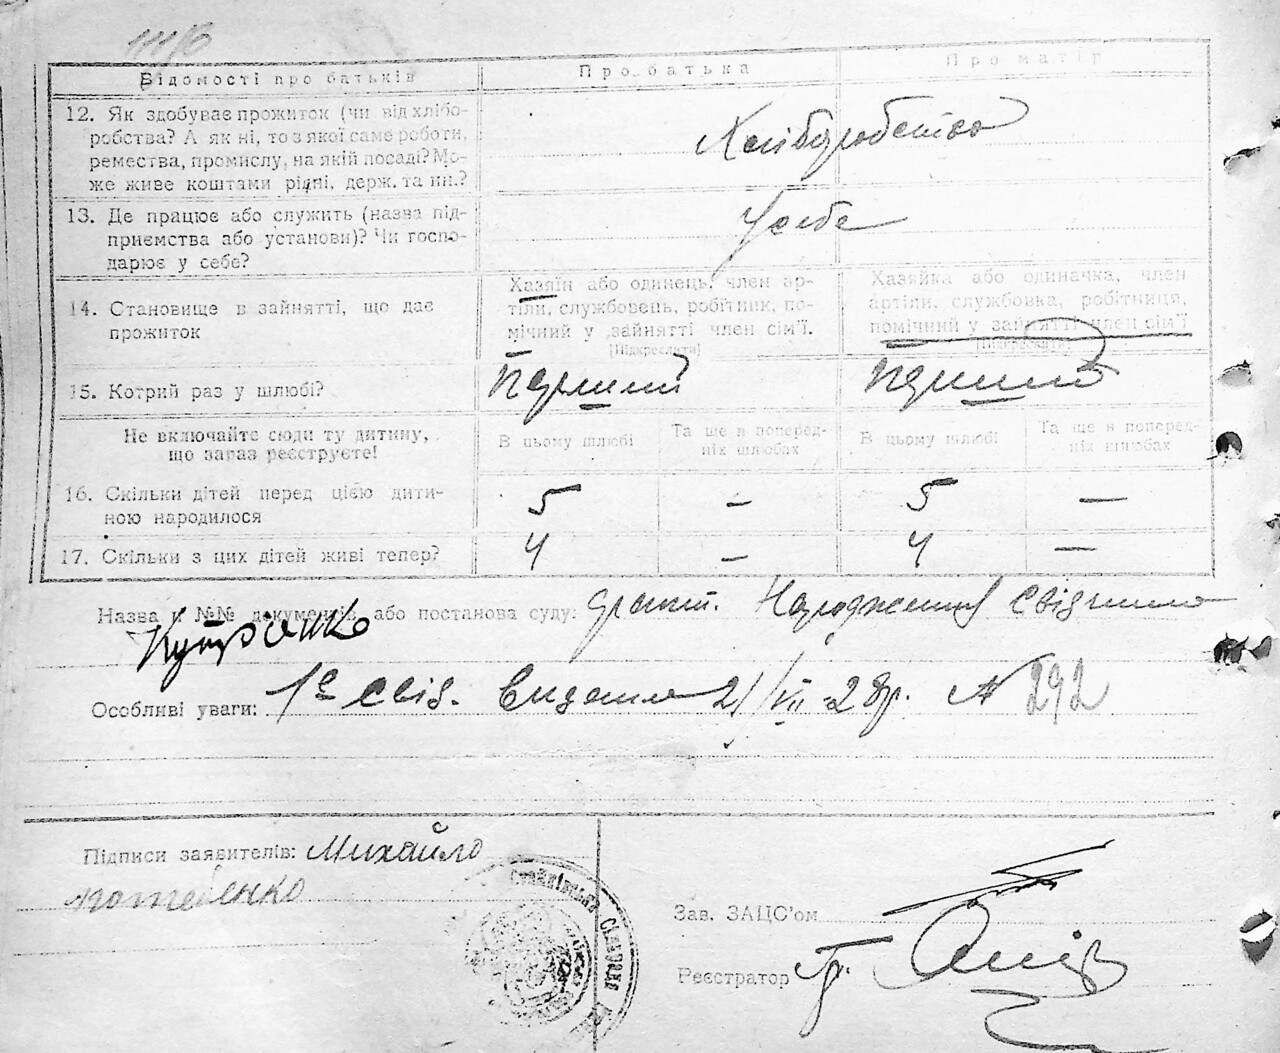 111/6
Відомості про батьків
Про батька
Про матір
12. Як здобуває прожиток (чи від хлібо-
робства? А як ні, то з якої саме роботи,
ремества, промислу, на якій посаді? Мо-
же живе коштами рідні, держ. та ин.?
Хліборобство
13. Де працює або служить (назва під-
приємства або установи)? Чи госпо-
дарює у себе?
У себе
14. Становище в зайнятті, що дає
прожиток
Хазяїн або одинець, член ар-
тіли, службовець, робітник, по-
мічний у зайнятті член сім'ї.
[Підкреслити]
Хазяйка або одиначка, член
артіли, службовка, робітниця,
помічний у зайнятті член сім'ї
[Підкреслити]
15. Котрий раз у шлюбі?
Перший
Перший
Не включайте сюди ту дитину,
що зараз реєструєте!
В цьому шлюбі
Та ще в поперед-
ніх шлюбах
В цьому шлюбі
Та ще в попере-
дніх шлюбах
16. Скільки дітей перед цією дити-
ною народилося
5 — 5 —
17. Скільки з цих дітей живі тепер?
4 — 4 —
Назва и №№ документів, або постанова суду:
Народження
Особливі уваги: свід. Видано 21/VII-28р. № 292
Підписи заявителів: Михайло
Зав. ЗАЦС'ом
Реєстратор